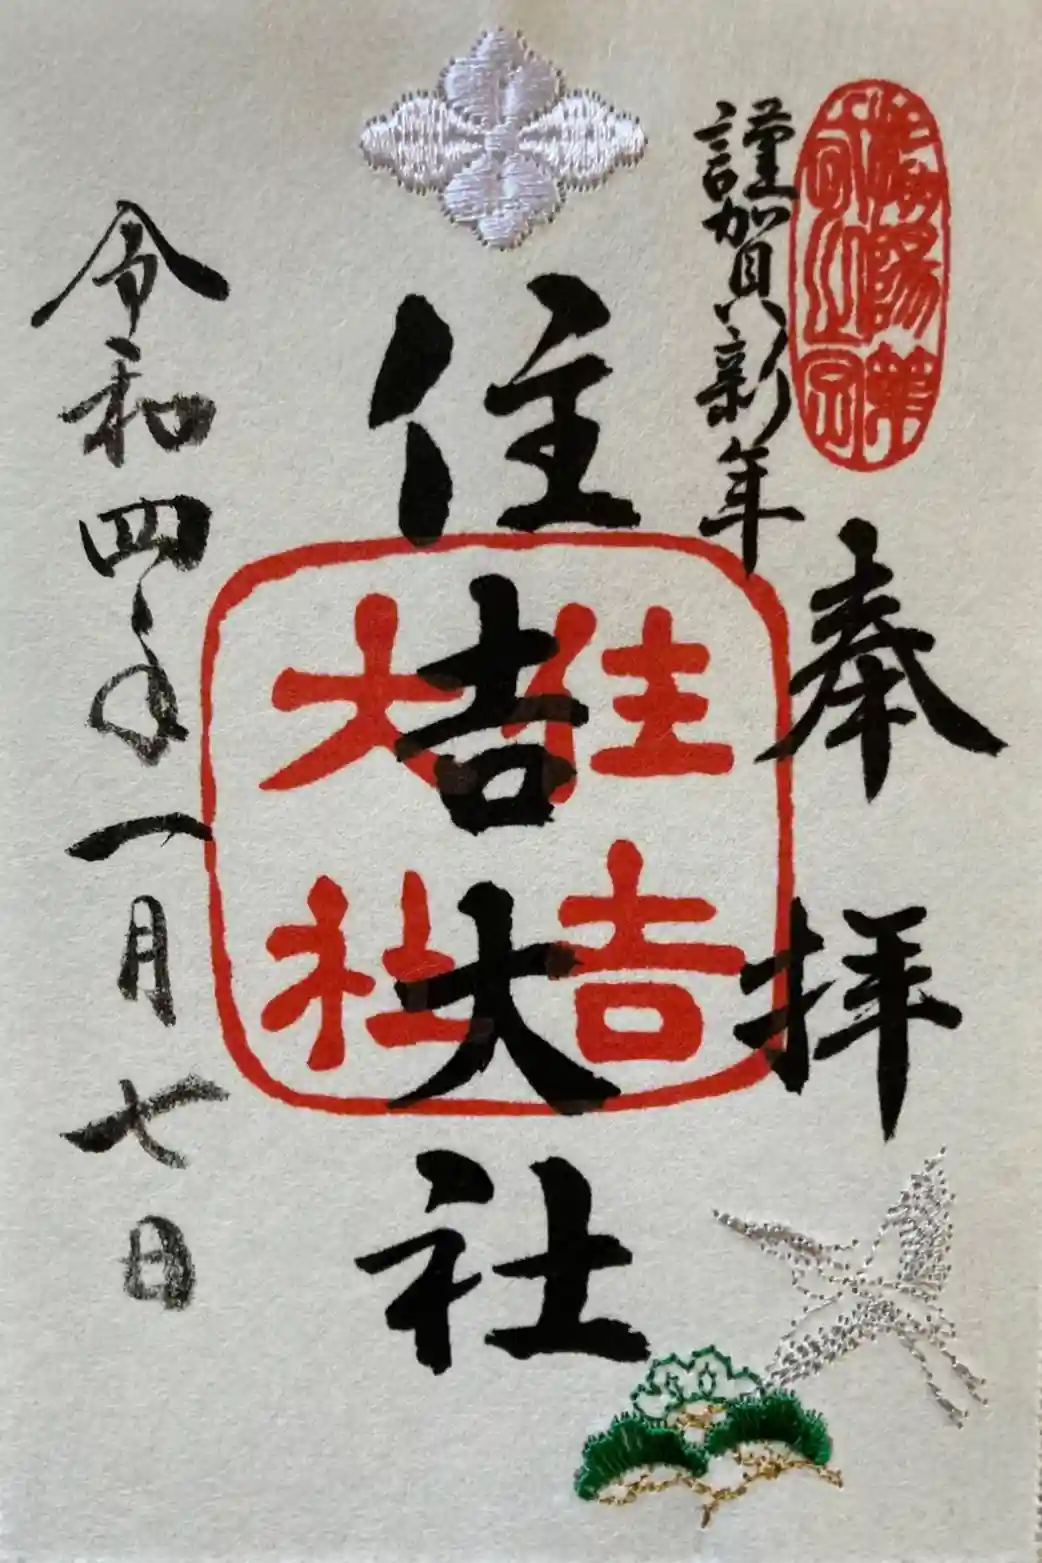 謹賀新年
奉拝
住吉大社
住吉
大社
令和四年一月七日